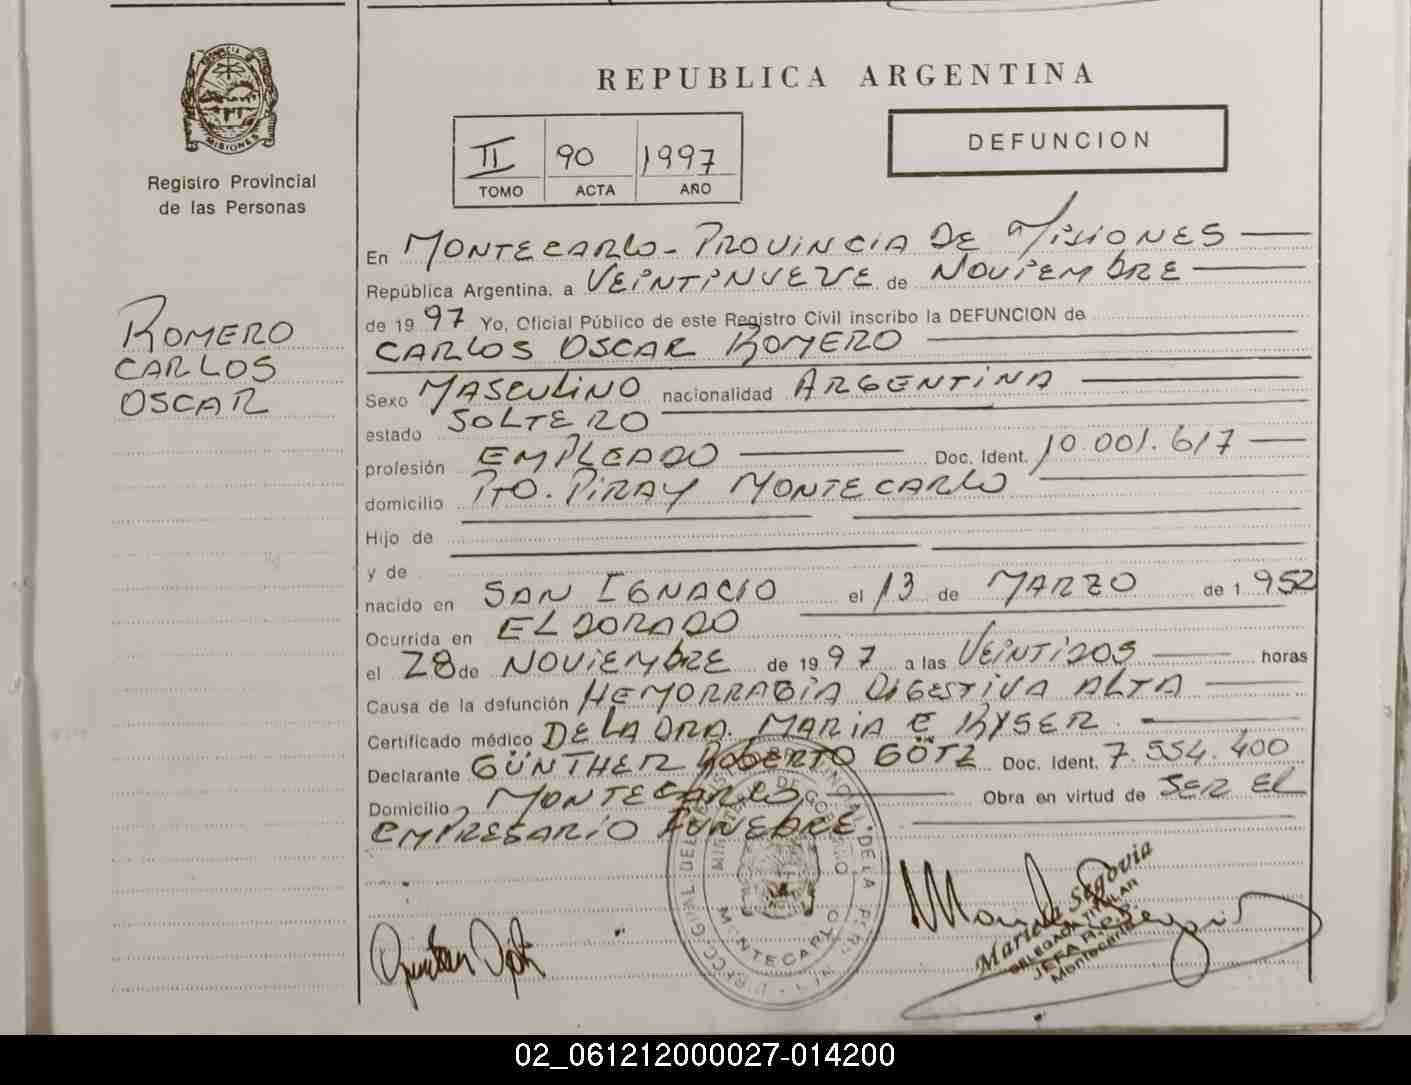 PROVINCIA DE
MISIONES
Registro Provincial
de las Personas
ROMERO
CARLOS
OSCAR
REPUBLICA ARGENTINA
II 90 1997
TOMO ACTA AÑO
DEFUNCION
En MONTECARLO - PROVINCIA DE MISIONES
República Argentina, a VEINTINUEVE de NOVIEMBRE
de 1997 Yo, Oficial Público de este Registro Civil inscribo la DEFUNCION de
CARLOS OSCAR ROMERO
Sexo MASCULINO nacionalidad ARGENTINA
estado SOLTERO
profesión EMPLEADO Doc. Ident. 10.001.617
domicilio PTO. PIRAY MONTECARLO
Hijo de
y de
nacido en SAN IGNACIO el 13 de MARZO de 1952
Ocurrida en ELDORADO
el 28 de NOVIEMBRE de 1997 a las VEINTIDOS horas
Causa de la defunción HEMORRAGIA DIGESTIVA ALTA
Certificado médico DE LA DRA. MARIA E KYSER.
Declarante GÜNTHER ROBERTO GÖTZ Doc. Ident. 7.554.400
Domicilio MONTECARLO Obra en virtud de SER EL
EMPRESARIO FUNEBRE.
MONTECARLO
Mariela Segovia
DELEGADA TITULAR
JEFA R.C.
Montecarlo
02_061212000027-014200